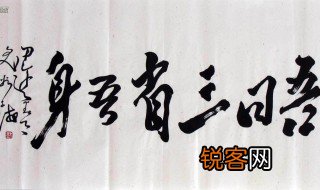 吾日三省吾身
锐客网